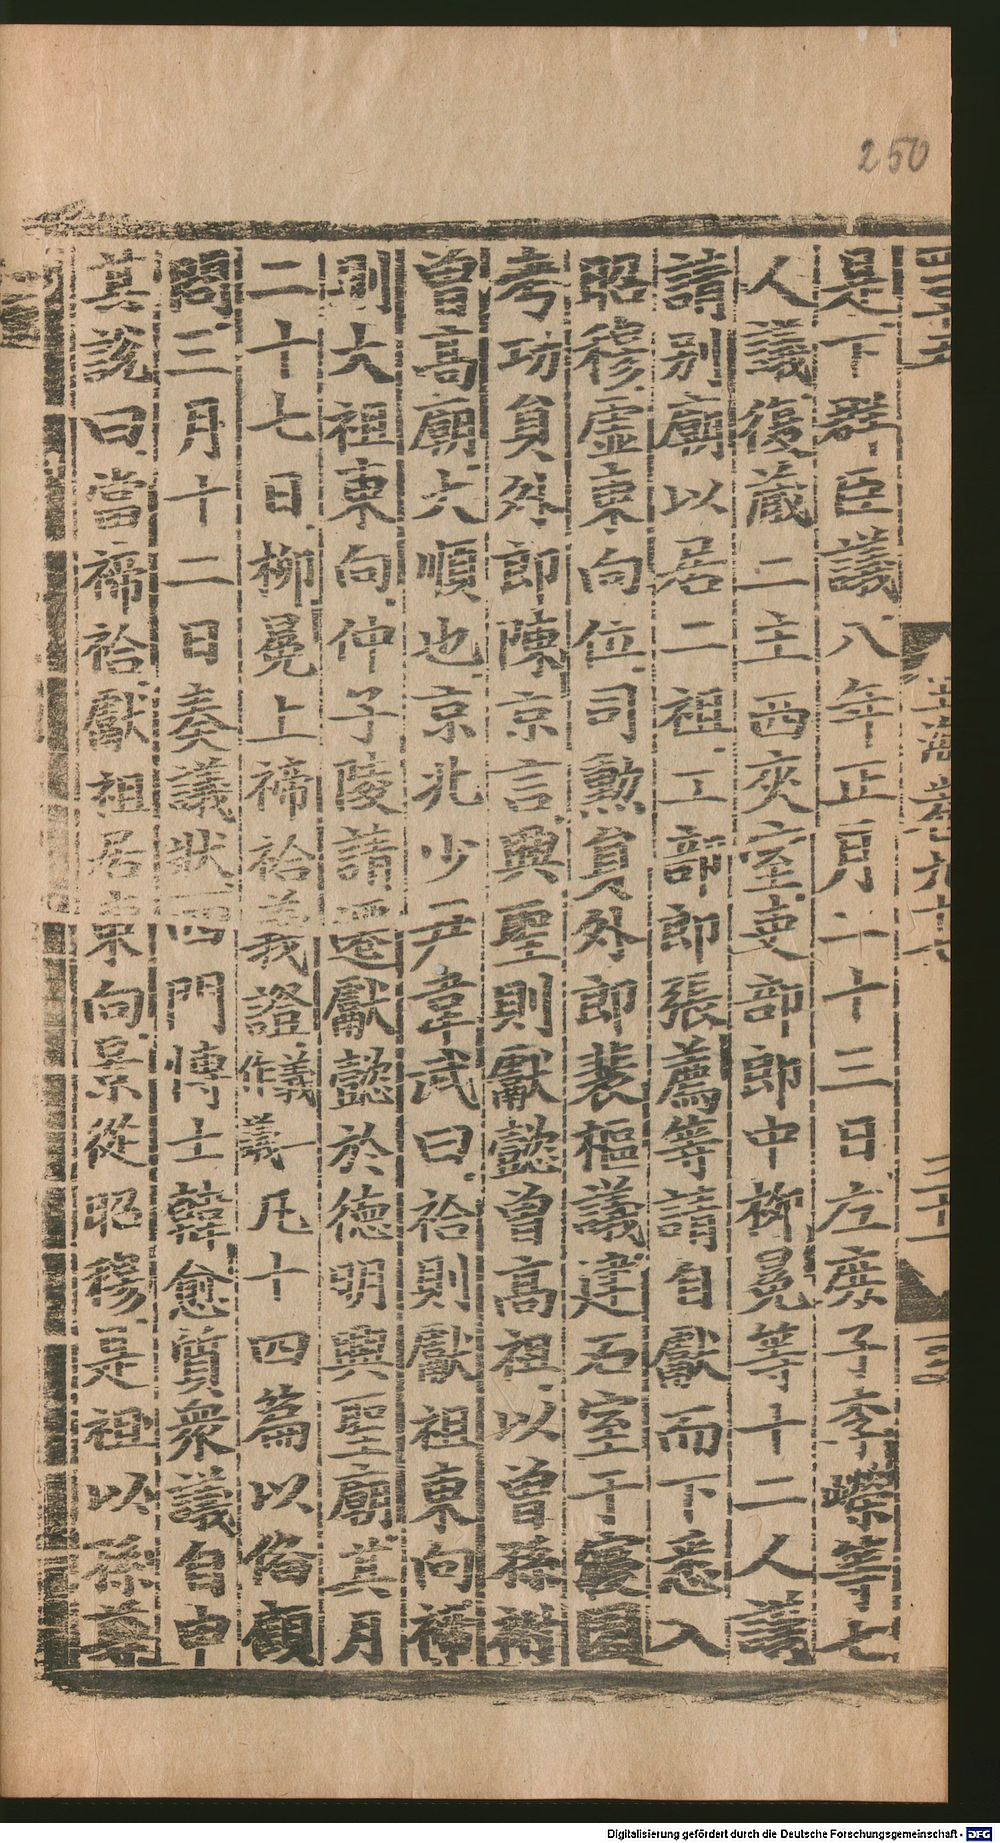 250
四百五
玉海卷九十七
三十一
是下群臣議八年正月二十三日左庶子李嶸等七
人議復藏二主西夾室吏部郎中柳冕等十二人議
請别廟以居二祖工部郎張薦等請自獻而下悉入
昭穆虛東向位司勲負外郎裴樞議建石室于寢園
考功負外郎陳京言興聖則獻懿曾高祖以曾孫祔
曾高廟大順也京兆少尹韋武曰祫則獻祖東向禘
則大祖東向仲子陵請遷獻懿於德明興聖廟其月
二十七日柳冕上禘祫義證我作義議一凡十四篇以俻顧
問三月十二日奏議狀四門愽士韓愈質衆議自申
其説曰當禘祫獻祖居東向景從昭穆是祖以孫尊
Digitalisierung gefördert durch die Deutsche Forschungsgemeinschaft - DFG